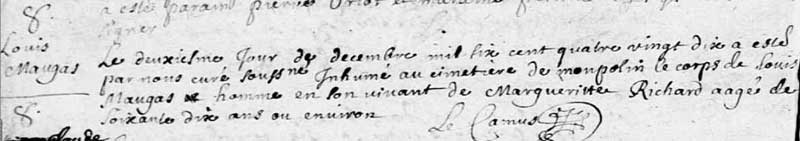 8.
a esté parain pierre
signer
Louis
Maugas
Le deuxiesme Jour de decembre mil six cent quatre vingt dix a esté
par nous curé soussne Inhumé au cimetière de monpolin le corps de Louis
Maugas homme en son vivant de Margueritte Richard aagé de
soixante dix ans ou environ
Le Camus
8.